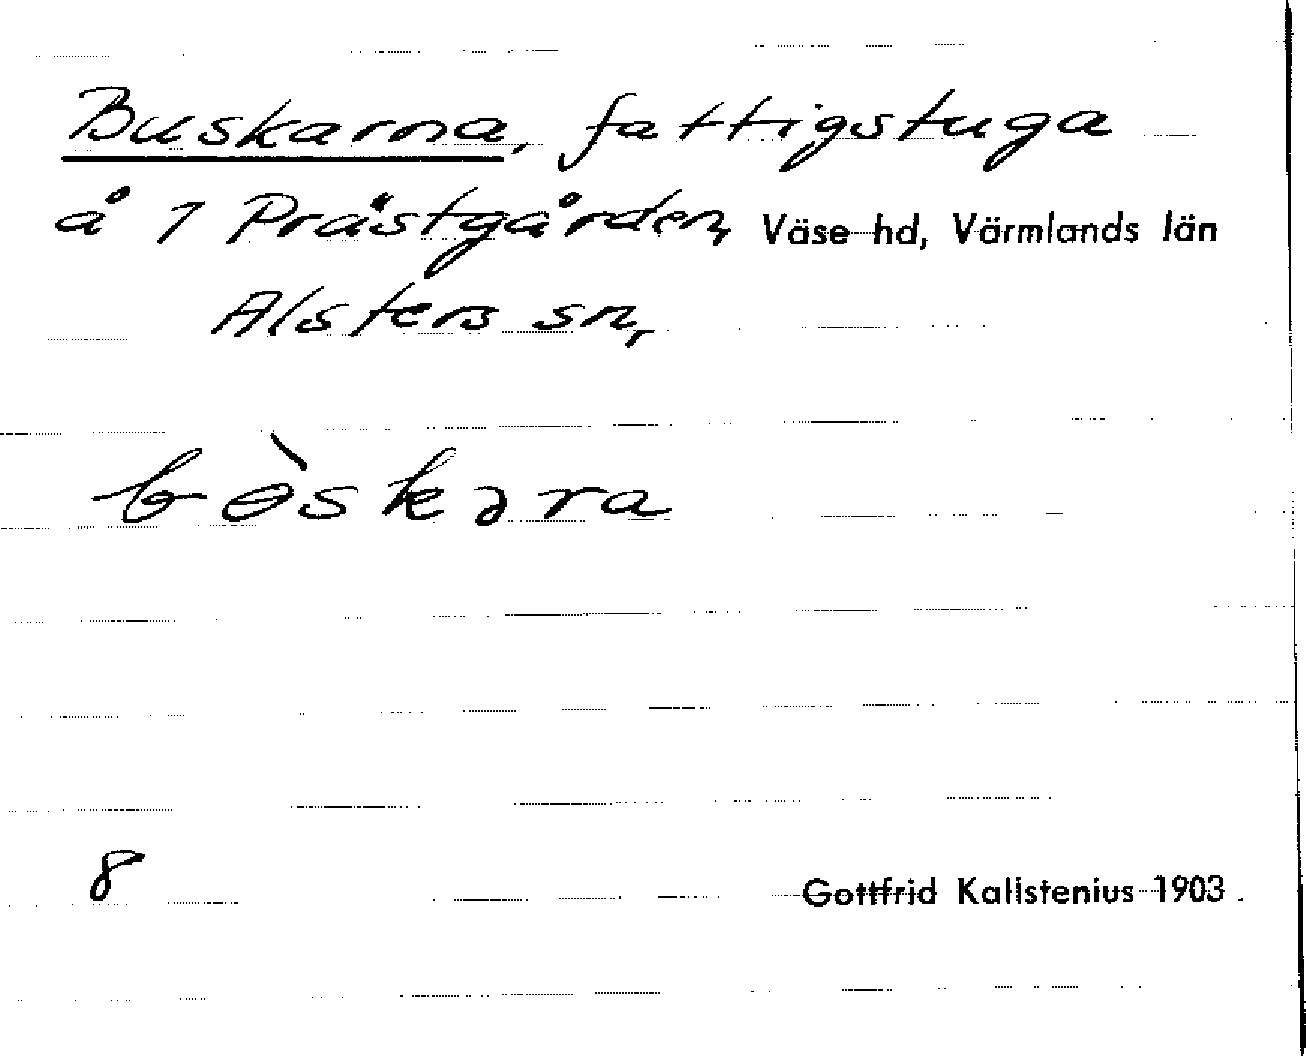 Buskarna, fattigstuga
å 1 Prästgården, Väse hd, Värmlands län
Alsters sn,
bə̀skəra
8
Gottfrid Kallstenius 1903.